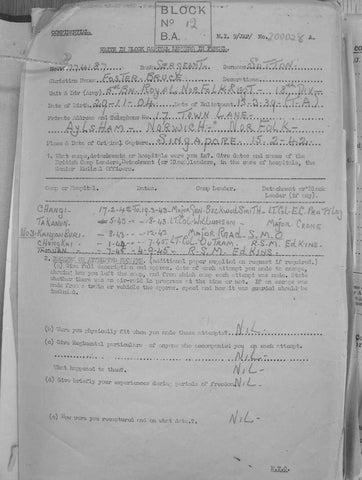 BLOCK
No 12
B.A.
CONFIDENTIAL.
M.I. 9/JAP/ No. 200028 A.
WRITE IN BLOCK CAPITAL LETTERS IN PENCIL.
No. Rank. SERGEANT Surname. SUTTON
Christian Names. FOSTER BRUCE Decorations.
Unit & Div (Army) 5th BN. ROYAL NORFOLK REGT - 18TH DIV-
Date of Birth. 29-11-04 Date of Enlistment. 15-3-39 (T.A)
Private Address and Telephone No. 17 TOWN LANE.
AYLSHAM - NORWICH - NORFOLK -
Place & Date of Original Capture. SINGAPORE 15.2.42
1. What camps, detachments or hospitals were you in? Give dates and names of the
British Camp Leaders, (Detachment or Block) Leaders, in the case of hospitals, the
Senior Medical Officers.
Camp or Hospital. Dates. Camp Leader. Detachment or Block
Leader (if any).
CHANGI. MAJOR GEN. BECKWORTH SMITH - LT. COL. E.C.
TAKANUN. -5.43 -8.43 LT. COL. MAJOR CRONE
KANJANBURI. 8.43 - 12.43 MAJOR ROAD. S.M.O.
CHUNGKAI - 7.45 LT. COL OUTRAM. R.S.M. EDKINS.
TAMUAN - 7.45 R.S.M. EDKINS.
(additional paper supplied on request if required.)
(a) Give full description and approx. date of each attempt you made to escape,
showing how you left the camp, and from which camp each attempt was made. State
whether there was an air-raid in progress at the time or not. If an escape was
made from a train or vehicle the approx. speed and how it was guarded should be
included.
(b) Were you physically fit when you made these attempts. NIL-
(c) Give Regimental particulars of anyone who accompanied you on each attempt.
NIL-
What happened to them? NIL-
(d) Give briefly your experiences during periods of freedom NIL-
(e) How were you recaptured and on what date? NIL-
P.T.O.